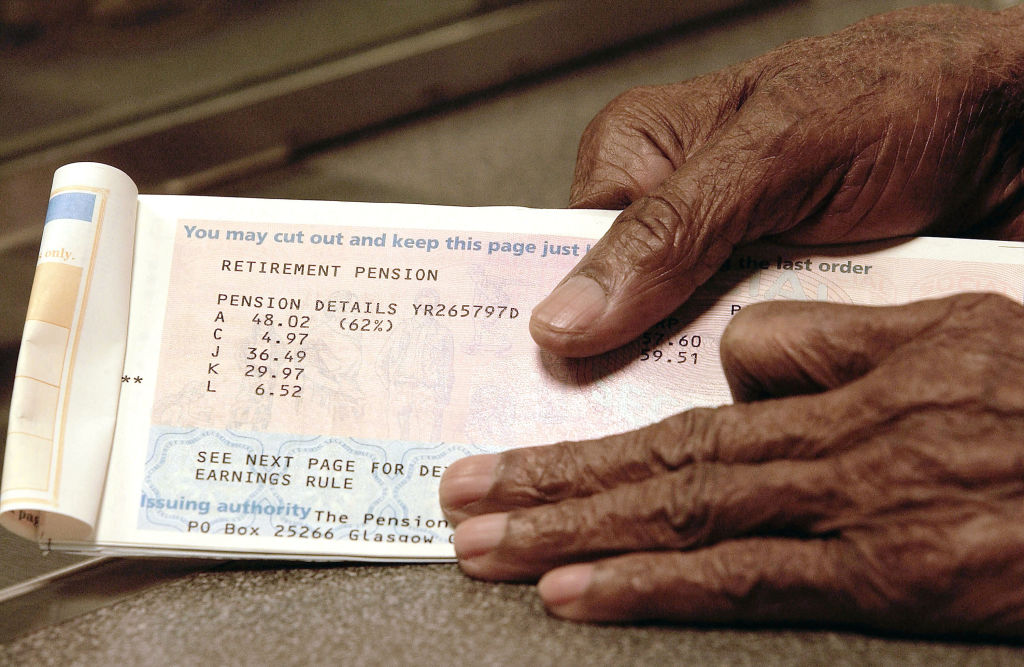 You may cut out and keep this page just
the last order
RETIREMENT PENSION
PENSION DETAILS YR265797D
A 48.02 (62%)
C 4.97
J 36.49
K 29.97
L 6.52
57.60
59.51
only.
**
SEE NEXT PAGE FOR
EARNINGS RULE
Issuing authority The Pension
PO Box 25266 Glasgow